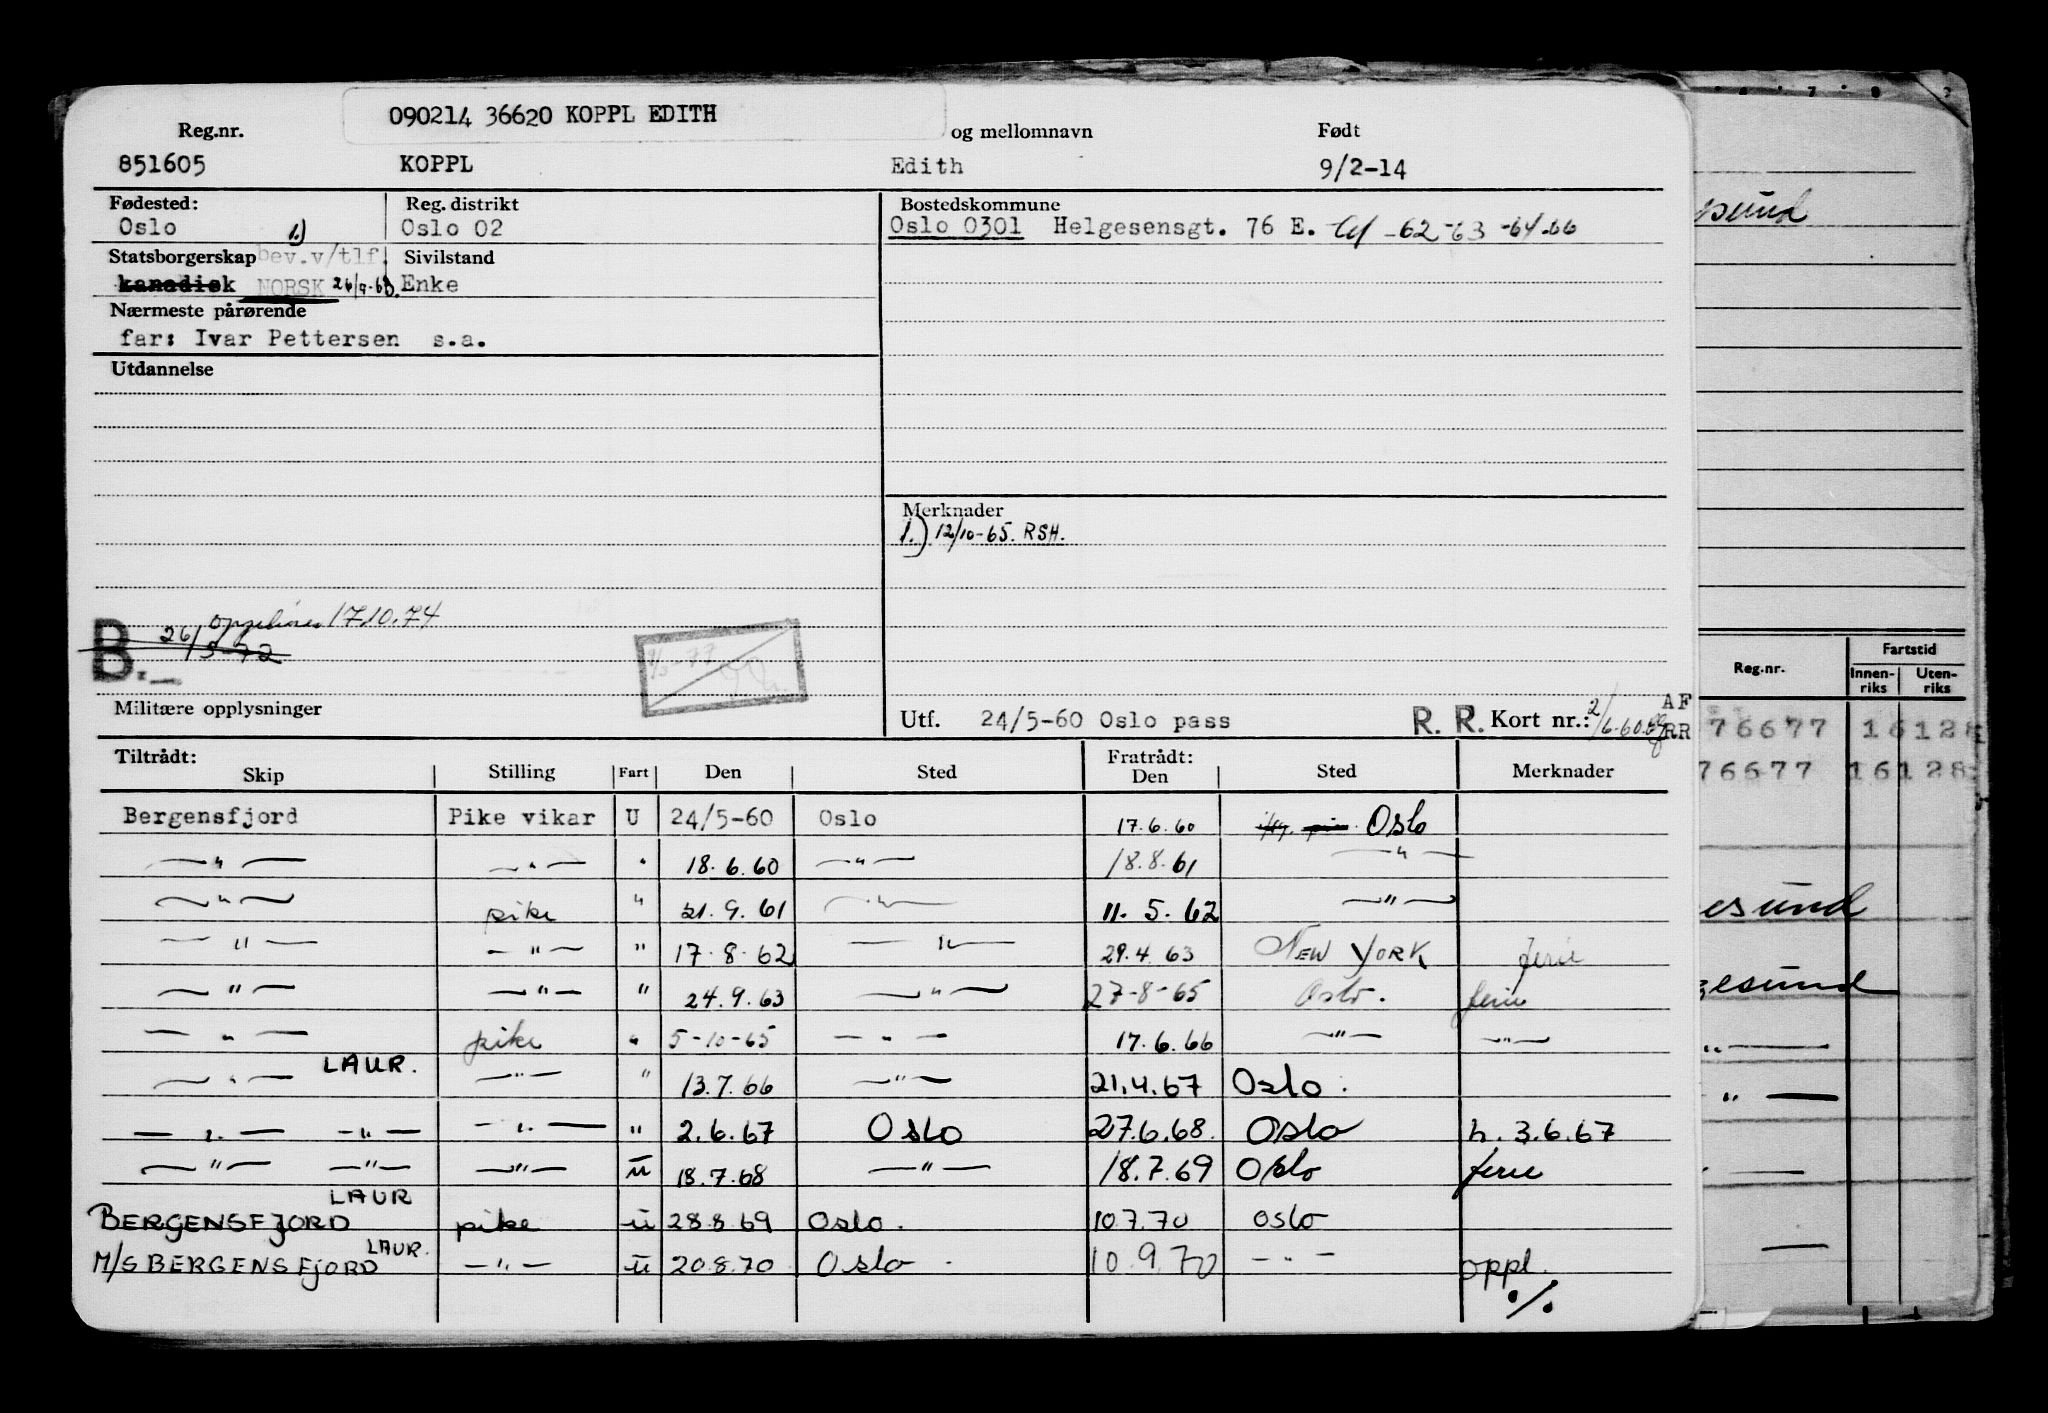 090214 36620 KOPPL EDITH
Reg.nr. og mellomnavn Født
851605 KOPPL Edith 9/2-14
Fødested: Reg. distrikt Bostedskommune
Oslo 1.) Oslo 02 Oslo 0301 Helgesensgt. 76 E. -62-63-64-66
Statsborgerskap bev.v/tlf. Sivilstand
kanadisk NORSK Enke
Nærmeste pårørende
far: Ivar Pettersen s.a.
Utdannelse
Merknader
1.) 12/10-65. RSH.
17.10.74
B. 26/5-72
1/3-77
Militære opplysninger
Utf. 24/5-60 Oslo pass R. R. Kort nr.: 2/6.60 AF
RR
Tiltrådt: Fratrådt:
Skip Stilling Fart Den Sted Den Sted Merknader
Bergensfjord Pike vikar U 24/5-60 Oslo 17.6.60 Oslo
—"— —"— " 18.6.60 —"— 18.8.61 —"—
—"— pike " 21.9.61 —"— 11.5.62 —"—
—"— —"— " 17.8.62 —"— 29.4.63 NEW YORK ferie
—"— —"— " 24.9.63 —"— 27-8-65 Oslo. ferie
—"— pike " 5-10-65 —"— 17.6.66 —"— —"—
—"— LAUR. —"— " 13.7.66 —"— 21.4.67 Oslo.
—"— —"— —"— " 2.6.67 Oslo 27.6.68. Oslo h. 3.6.67
—"— —"— —"— u 18.7.68 —"— 18.7.69 Oslo ferie
LAUR
BERGENSFJORD pike u 28.8.69 Oslo. 10.7.70 Oslo
M/S BERGENSFJORD LAUR. —"— u 20.8.70 Oslo 10.9.70 —"— oppl.
./.
Reg.nr. Fartstid
Innen-
riks Uten-
riks
76677 16128
76677 16128